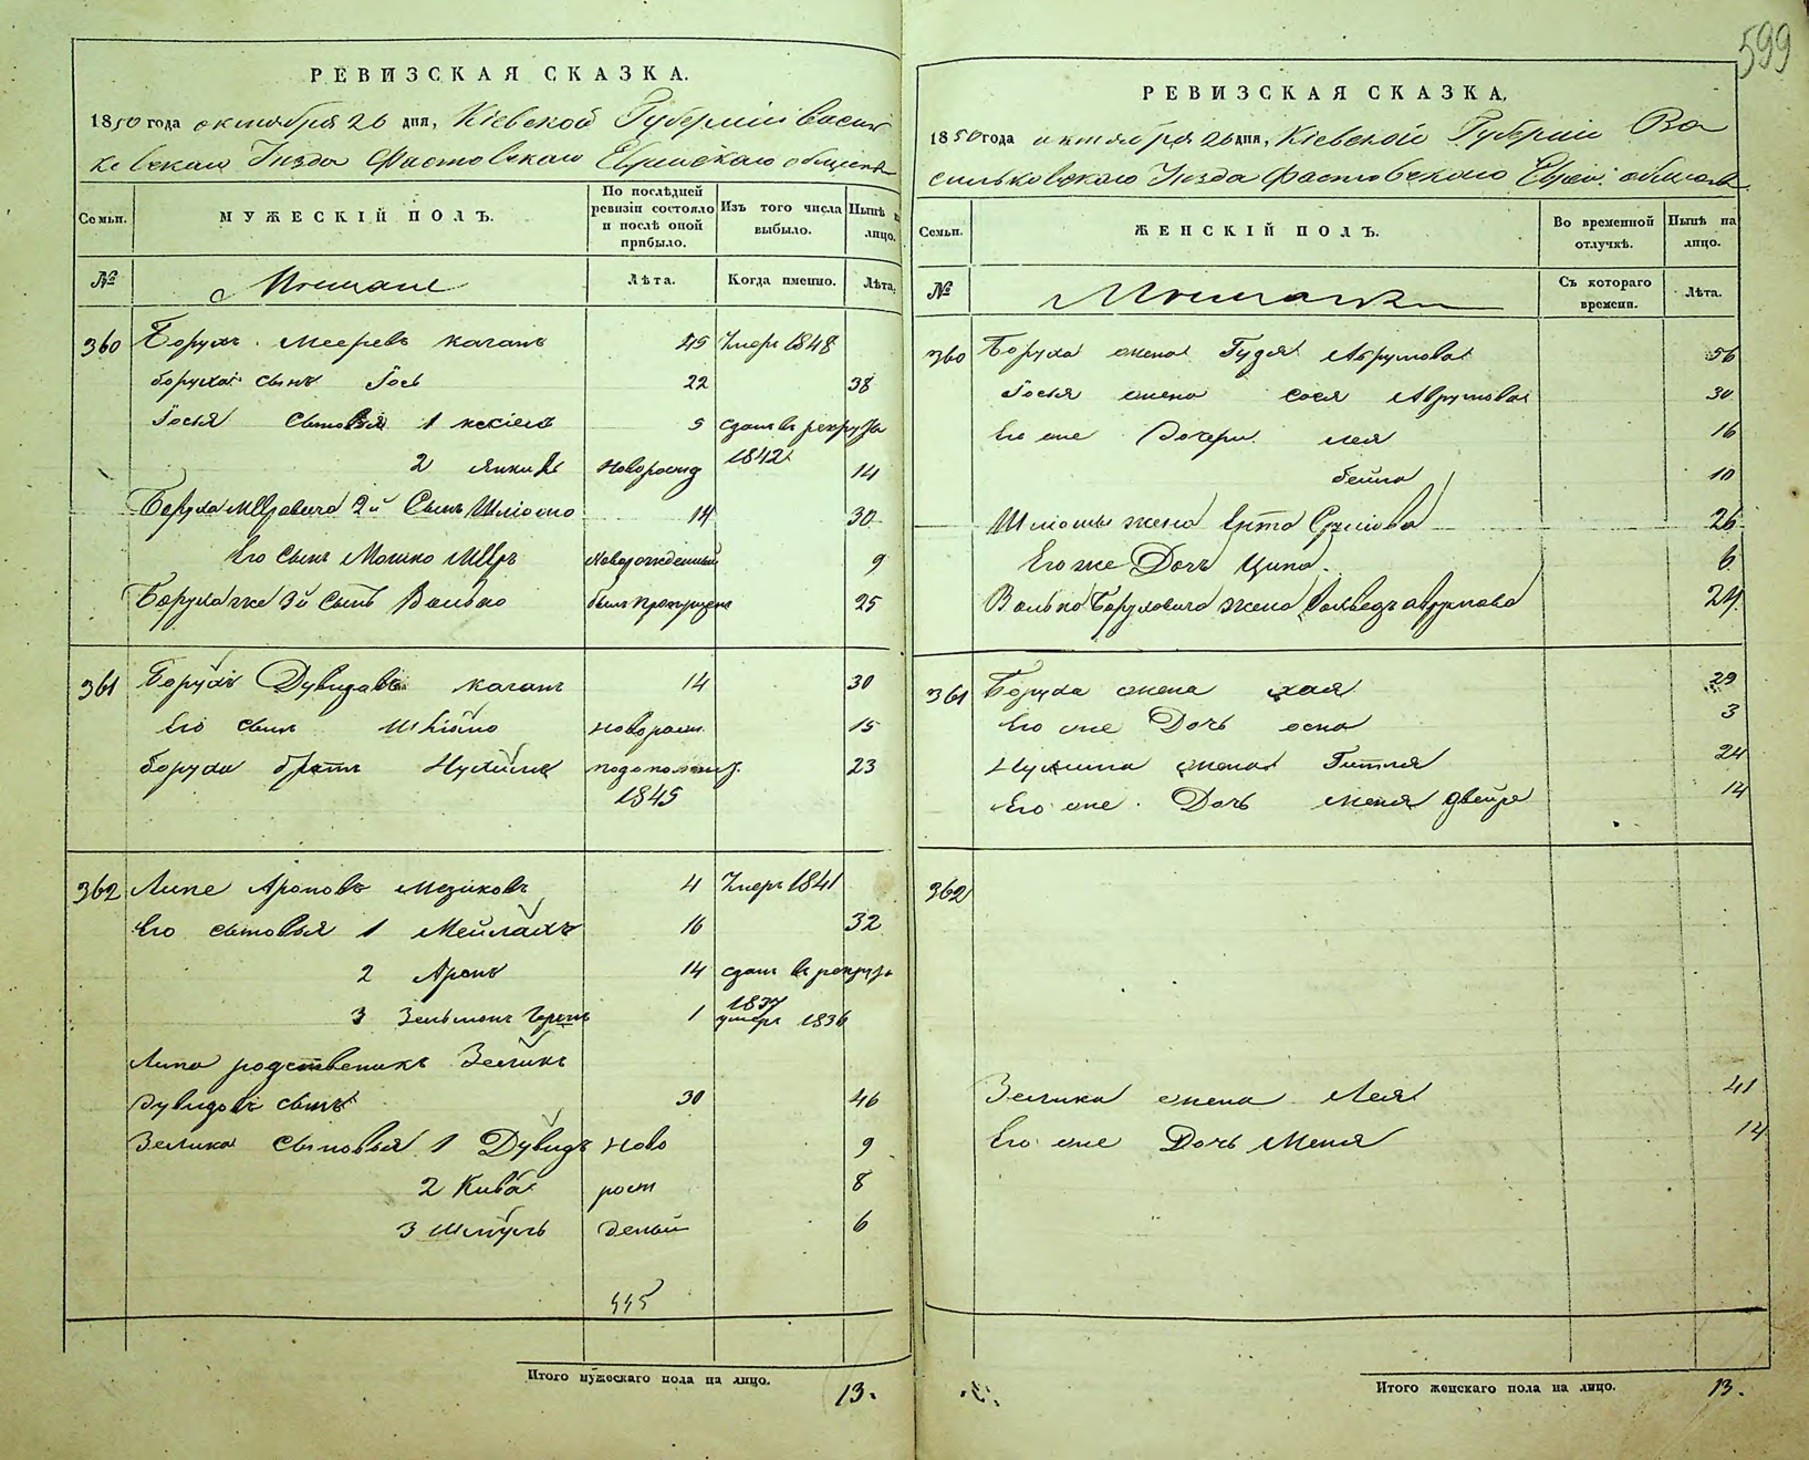 599
РЕВИЗСКАЯ СКАЗКА.
1850 года октября 26 дня, Кіевской Губерніи Василь
ковскаго Уезда Фастовскаго Еврейскаго общества
Семьи.
МУЖЕСКІЙ ПОЛЪ.
По послѣдней ревизіи состояло и послѣ оной прибыло.
Изъ того числа выбыло.
Нынѣ на лицо.
№
Мещане
Лѣта.
Когда именно.
Лѣта.
360 Борухъ Мееревъ Каганъ 45 Умеръ 1848
Боруха сынъ Іось 22 38
Іося сыновья 1 5 сданъ в рекруты
2 Янкель новорожд 1842 14
Боруха Мееровича 2й Сынъ Шліомо 14 30
Его Сынъ Мошко Меер новорожденный 9
Боруха же 3й Сынъ Волько былъ пропущенъ 25
361 Борухъ Дувидовъ Каганъ 14 30
Его сынъ новорож 15
Боруха братъ Нухимъ 23
1845
362 Липе Ароновъ 4 Умеръ 1841
Его сыновья 1 Мейлахъ 16 32
2 Аронъ 14 сданъ въ рекруты
1837
3 Зельманъ Герш 1 умеръ 1836
Липа родственикъ Зеликъ
Дувидовъ сынъ 30 46
Зелика сыновья 1 Дувидъ ново 9
2 Кива рож 8
3 Шмуль деный 6
445
Итого мужескаго пола на лицо. 13.
РЕВИЗСКАЯ СКАЗКА.
1850 года октября 26 дня, Кіевской Губерніи Ва
сильковскаго Уезда Фастовскаго Еврей. общества
Семьи.
ЖЕНСКІЙ ПОЛЪ.
Во временной отлучкѣ.
Нынѣ на лицо.
№
Мещанки
Съ котораго времени.
Лѣта.
360 Боруха жена Гудя Аврумова 56
Іося жена Сося Аврумова 30
Его же Дочери Лея 16
Бейла 10
Шліомы жена Ента Срулова 26
Его же Дочь Ципа. 6
Волько Боруховича жена Аврумова 24.
361 Боруха жена Хая 29
Его же Дочь 3
Нухима жена Гитля 24
Его же Дочь Меня Двейра 14
362
Зелика жена Лея 41
Его же Дочь Меня 14
Итого женскаго пола на лицо. 13.